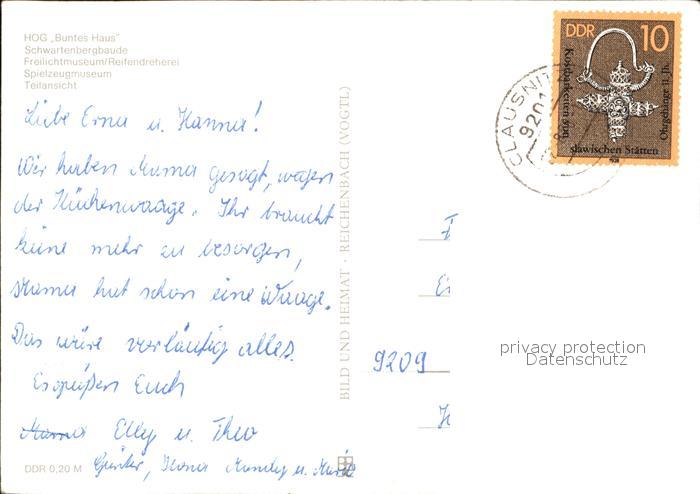 HOG „Buntes Haus"
Schwartenbergbaude
Freilichtmuseum/Reifendreherei
Spielzeugmuseum
Teilansicht
Liebe Erna u. Hanna!
Wir haben Mama gesagt, wegen
der Küchenwaage. Ihr braucht
keine mehr zu besorgen,
Mama hat schon eine Waage.
Das wäre vorläufig alles.
Es grüßen Euch
Elly u. Theo
Günter, Mandy u.
DDR 0,20 M
BILD UND HEIMAT · REICHENBACH (VOGTL)
DDR 10
Kostbarkeiten aus
slawischen Stätten
Ohrgehänge 11. Jh.
CLAUSNITZ
9201
9209
privacy protection
Datenschutz